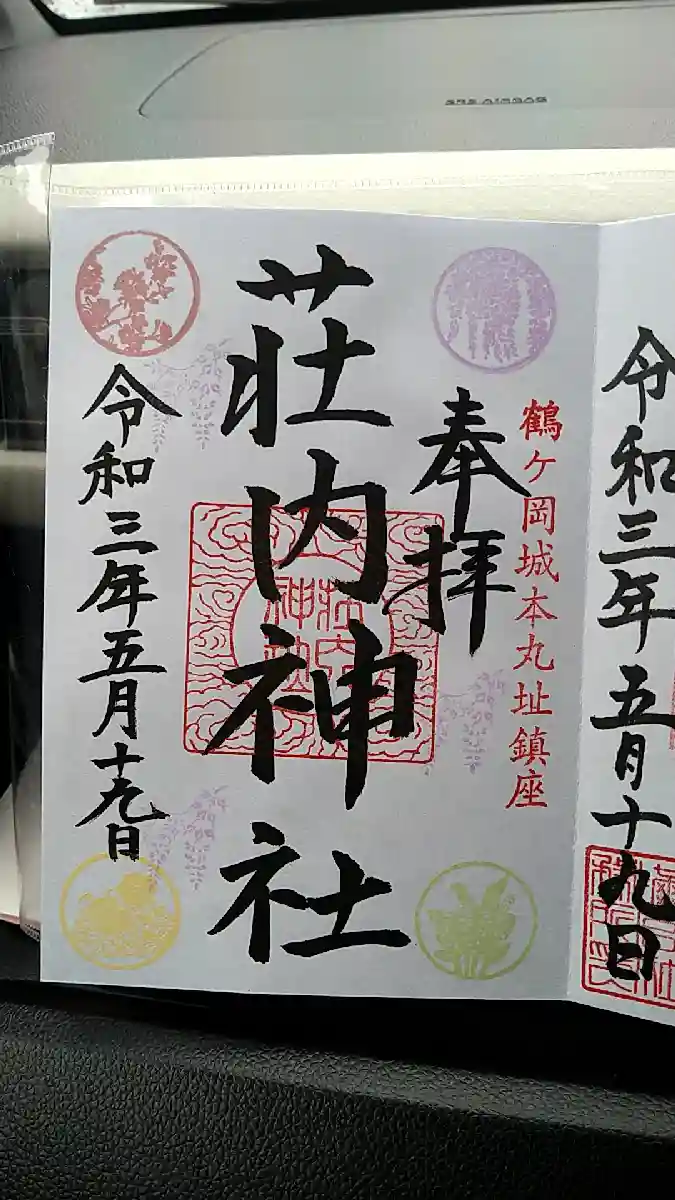 令和三年五月十九日
鶴ヶ岡城本丸址鎮座
奉拝
荘内神社
荘内神社
令和三年五月十九日
SRS AIRBAG